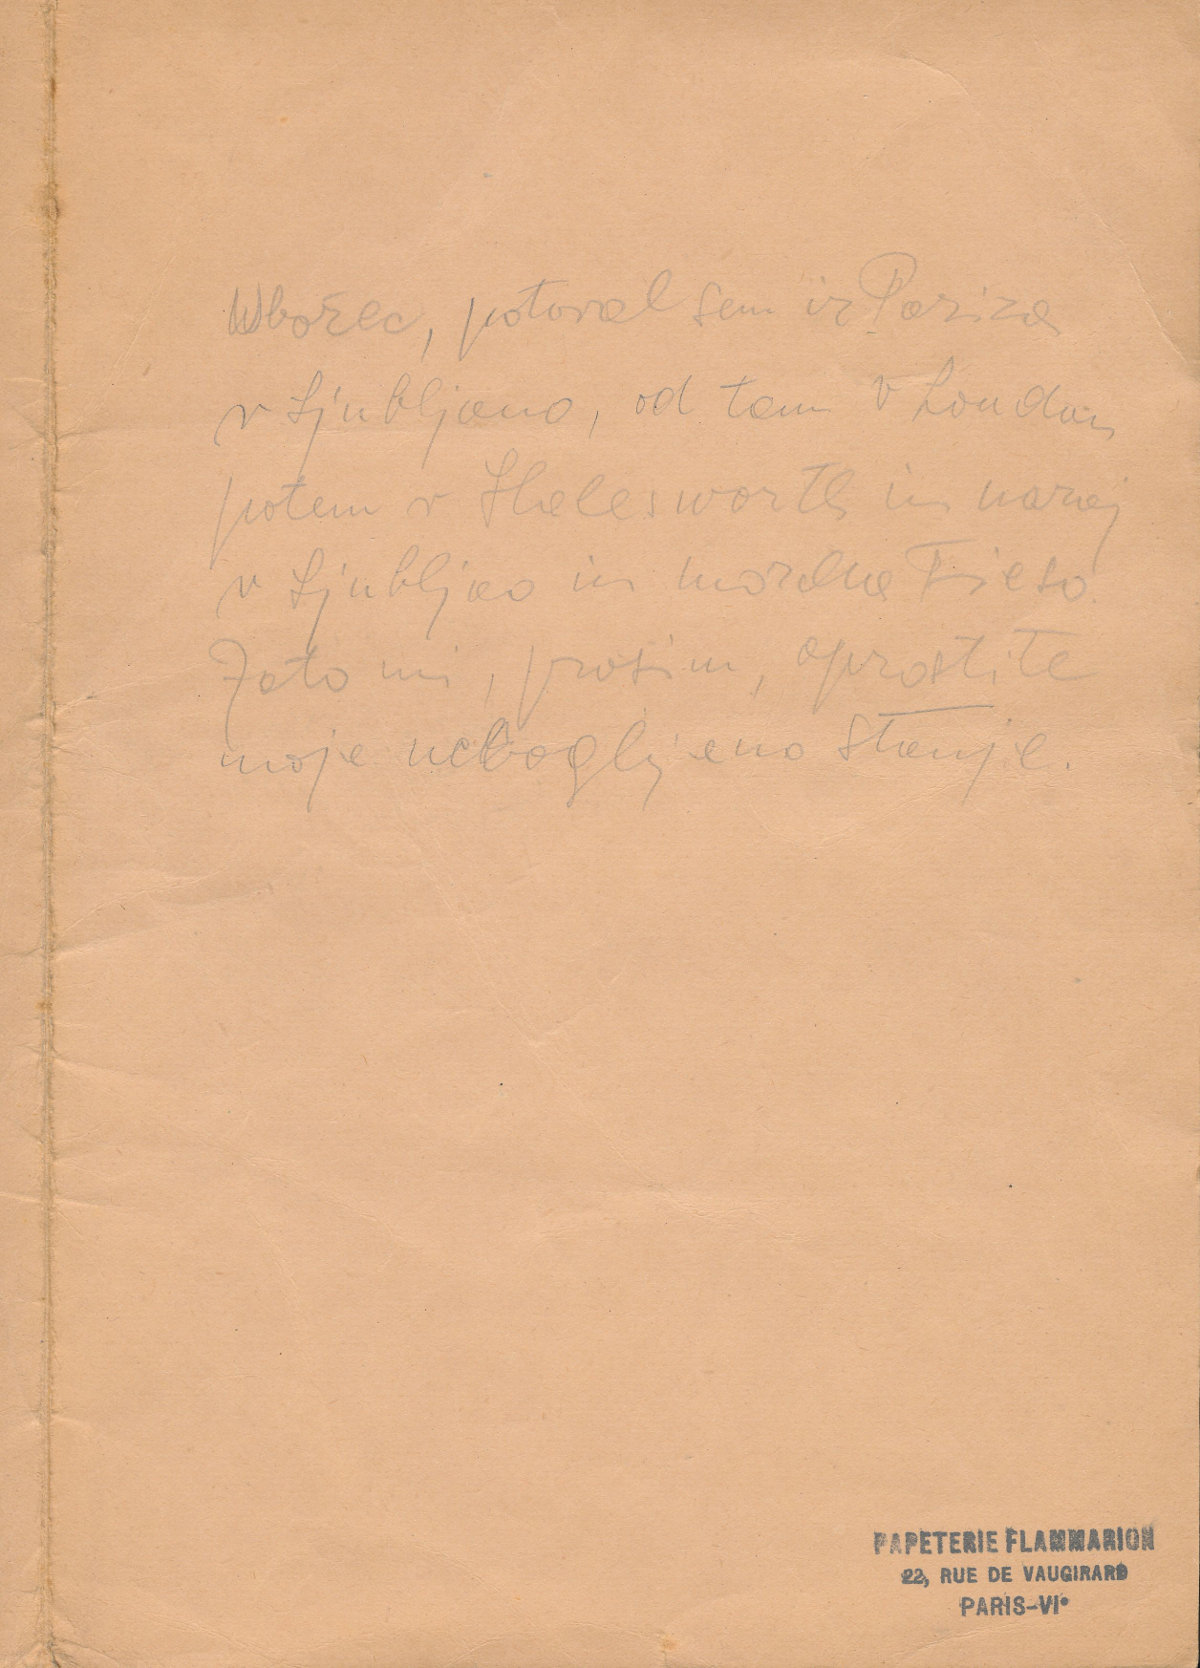 Ubožec, potoval sem iz Pariza
v Ljubljano, od tam v London
potem v Halesworth in nazaj
v Ljubljao in morda na Fieso.
Zato mi, prosim, oprostite
moje nebogljeno stanje.
PAPETERIE FLAMMARION
22, RUE DE VAUGIRARD
PARIS-VIe